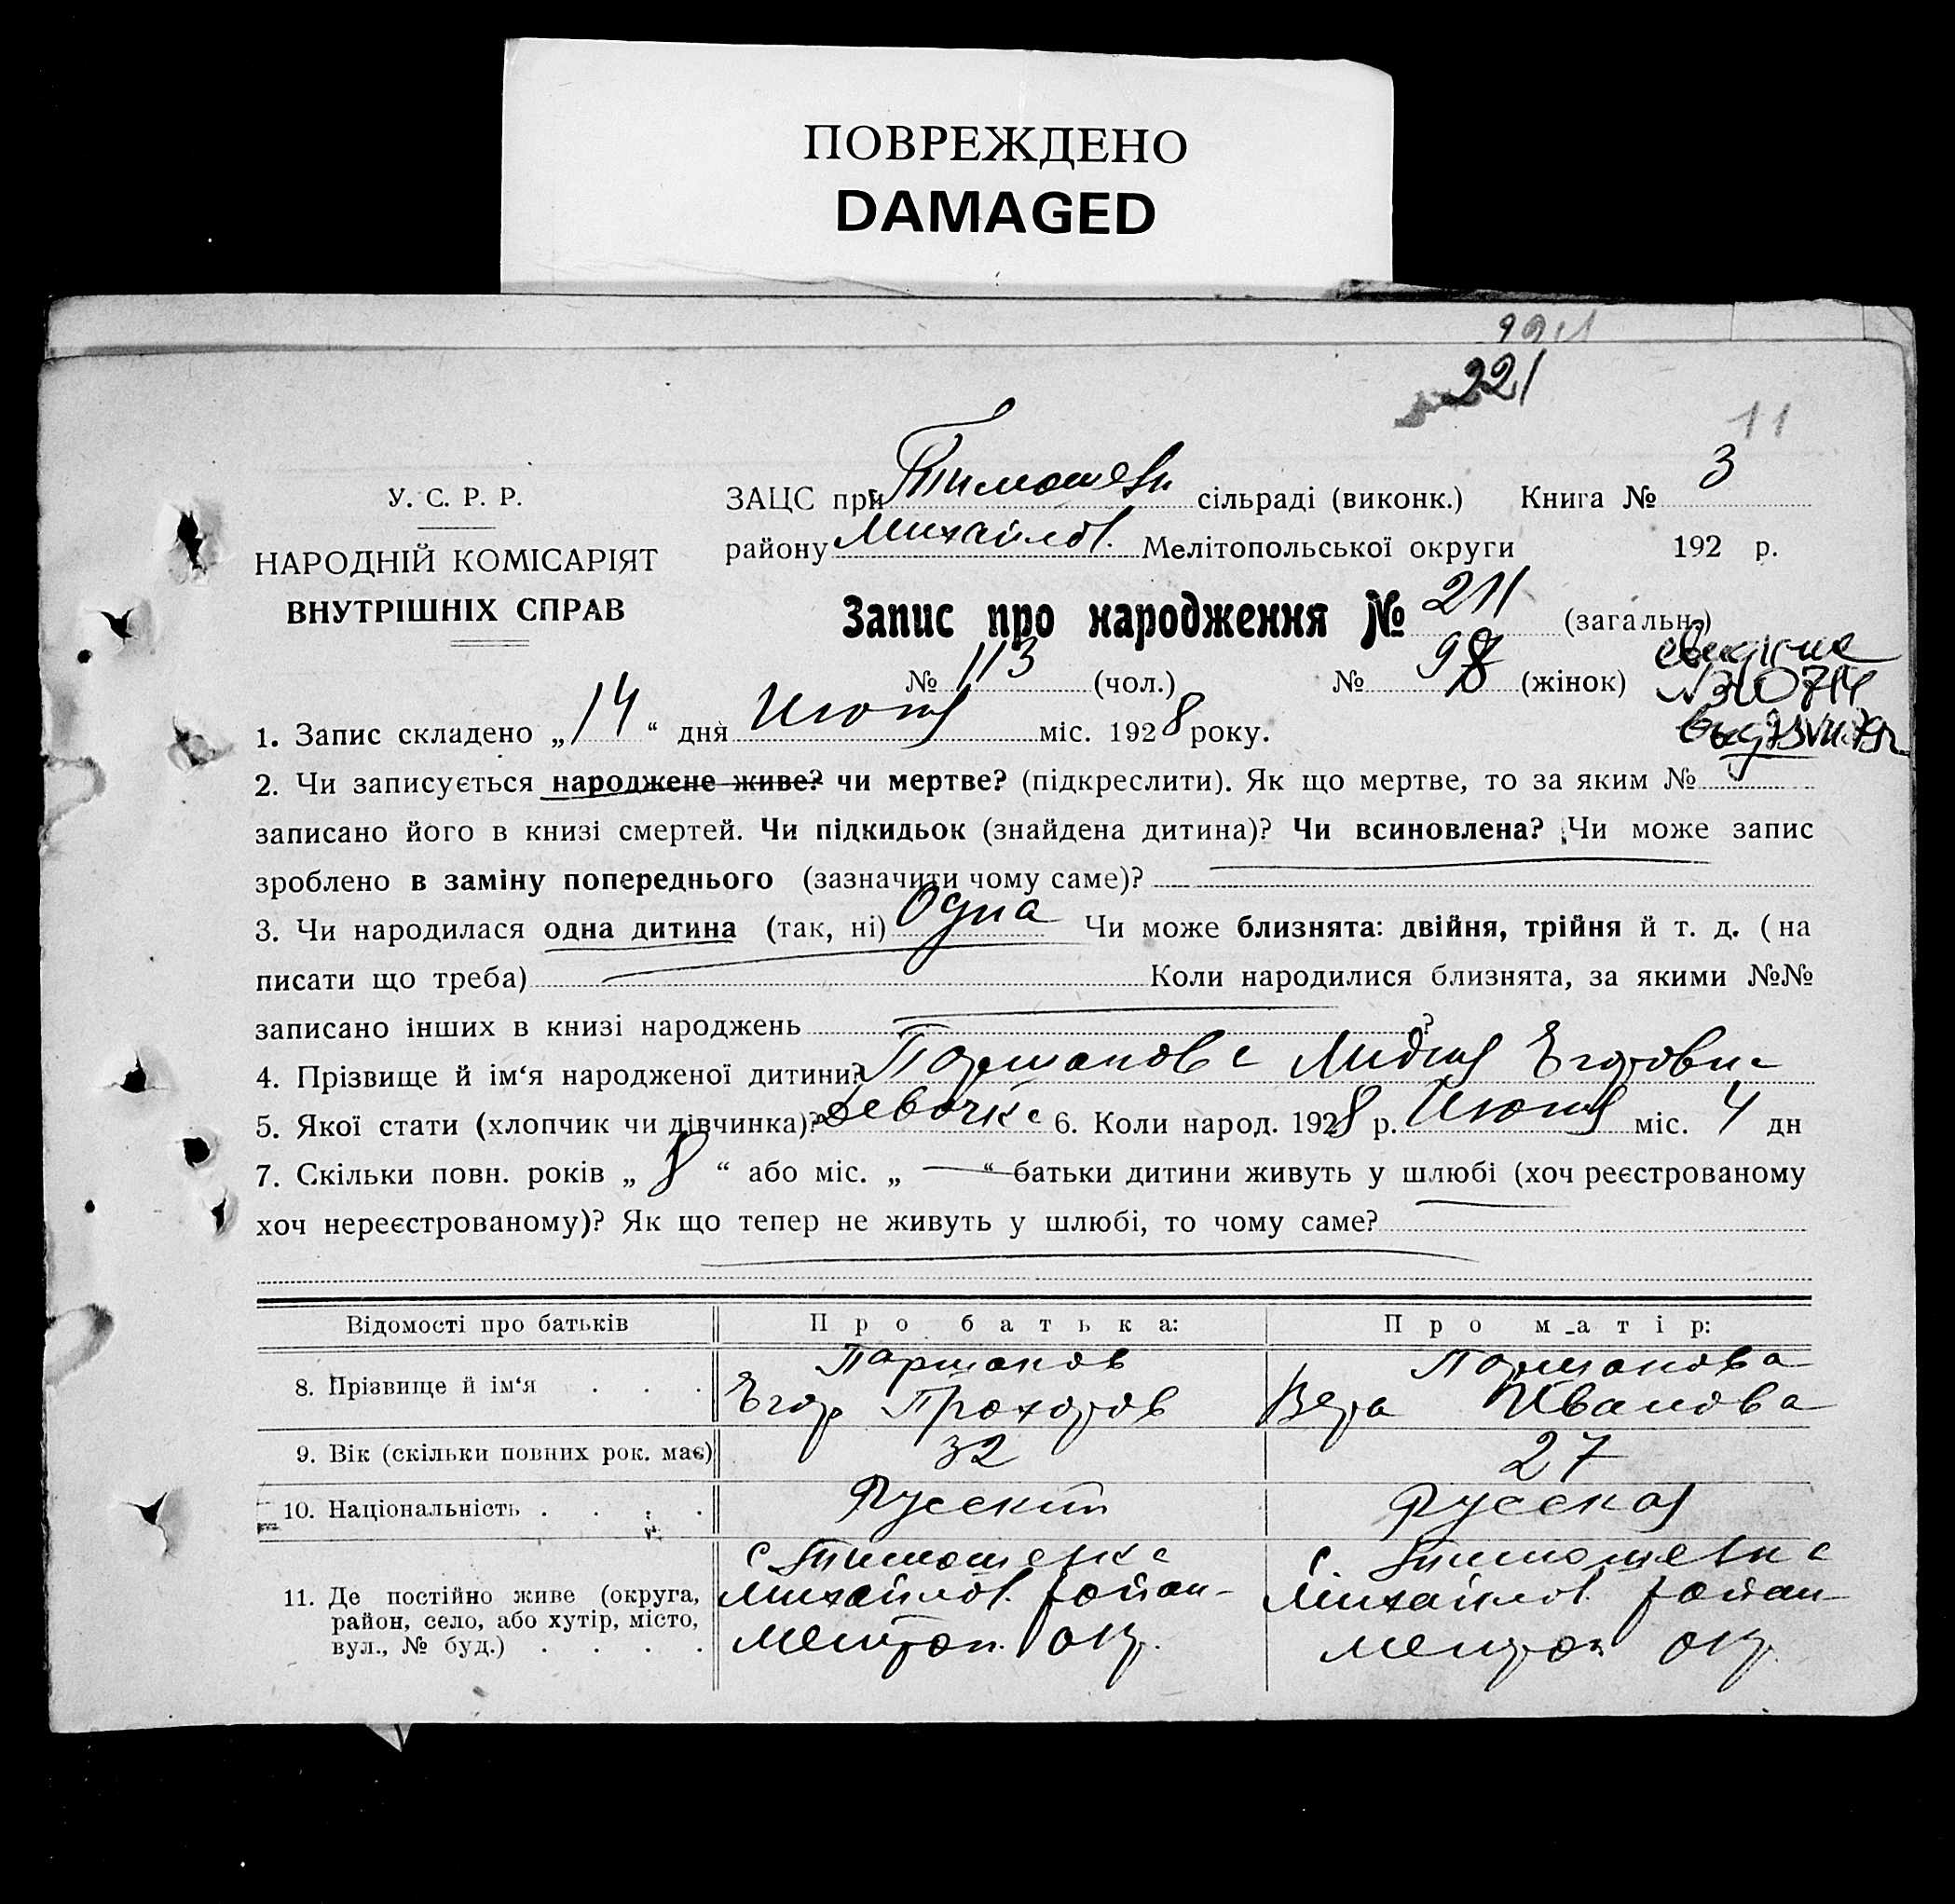 ПОВРЕЖДЕНО
DAMAGED
221
11
У. С. Р. Р.
НАРОДНІЙ КОМІСАРІЯТ
ВНУТРІШНІХ СПРАВ
ЗАЦС при Тимошевк сільраді (виконк.) Книга № 3
району Михайлов. Мелітопольської округи 192 р.
Запис про народження № 211 (загальн.)
№ 113 (чол.) № 98 (жінок)
1. Запис складено „14“ дня Июня міс. 1928 року.
2. Чи записується народжене живе? чи мертве? (підкреслити). Як що мертве, то за яким №
записано його в книзі смертей. Чи підкидьок (знайдена дитина)? Чи всиновлена? Чи може запис
зроблено в заміну попереднього (зазначити чому саме)?
3. Чи народилася одна дитина (так, ні) Одна Чи може близнята: двійня, трійня й т. д. (на
писати що треба) Коли народилися близнята, за якими №№
записано інших в книзі народжень ?
4. Прізвище й ім‘я народженої дитини? Паршакова Лидия Егоровна
5. Якої стати (хлопчик чи дівчинка)? Девочка 6. Коли народ. 1928 р. Июня міс. 4 дн
7. Скільки повн. років „8“ або міс. „—“ батьки дитини живуть у шлюбі (хоч реєстрованому
хоч нереєстрованому)? Як що тепер не живуть у шлюбі, то чому саме?
Відомості про батьків Про батька: Про матір:
8. Прізвище й ім‘я . . . Паршаков Паршакова
Егор Прохоров Вера Иванова
9. Вік (скільки повних рок. має) 32 27
10. Національність . . . . Русский Русская
11. Де постійно живе (округа, район, село, або хутір, місто, вул., № буд.) . . . .
с. Тимошевка с. Тимошевка
Михайлов. район Михайлов. район
Мелитоп. окр. Мелитоп окр.